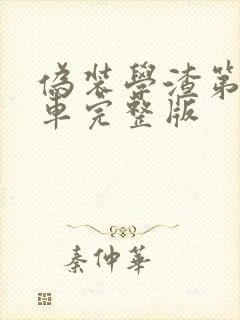 偽装學渣第
車完整版
秦仲華